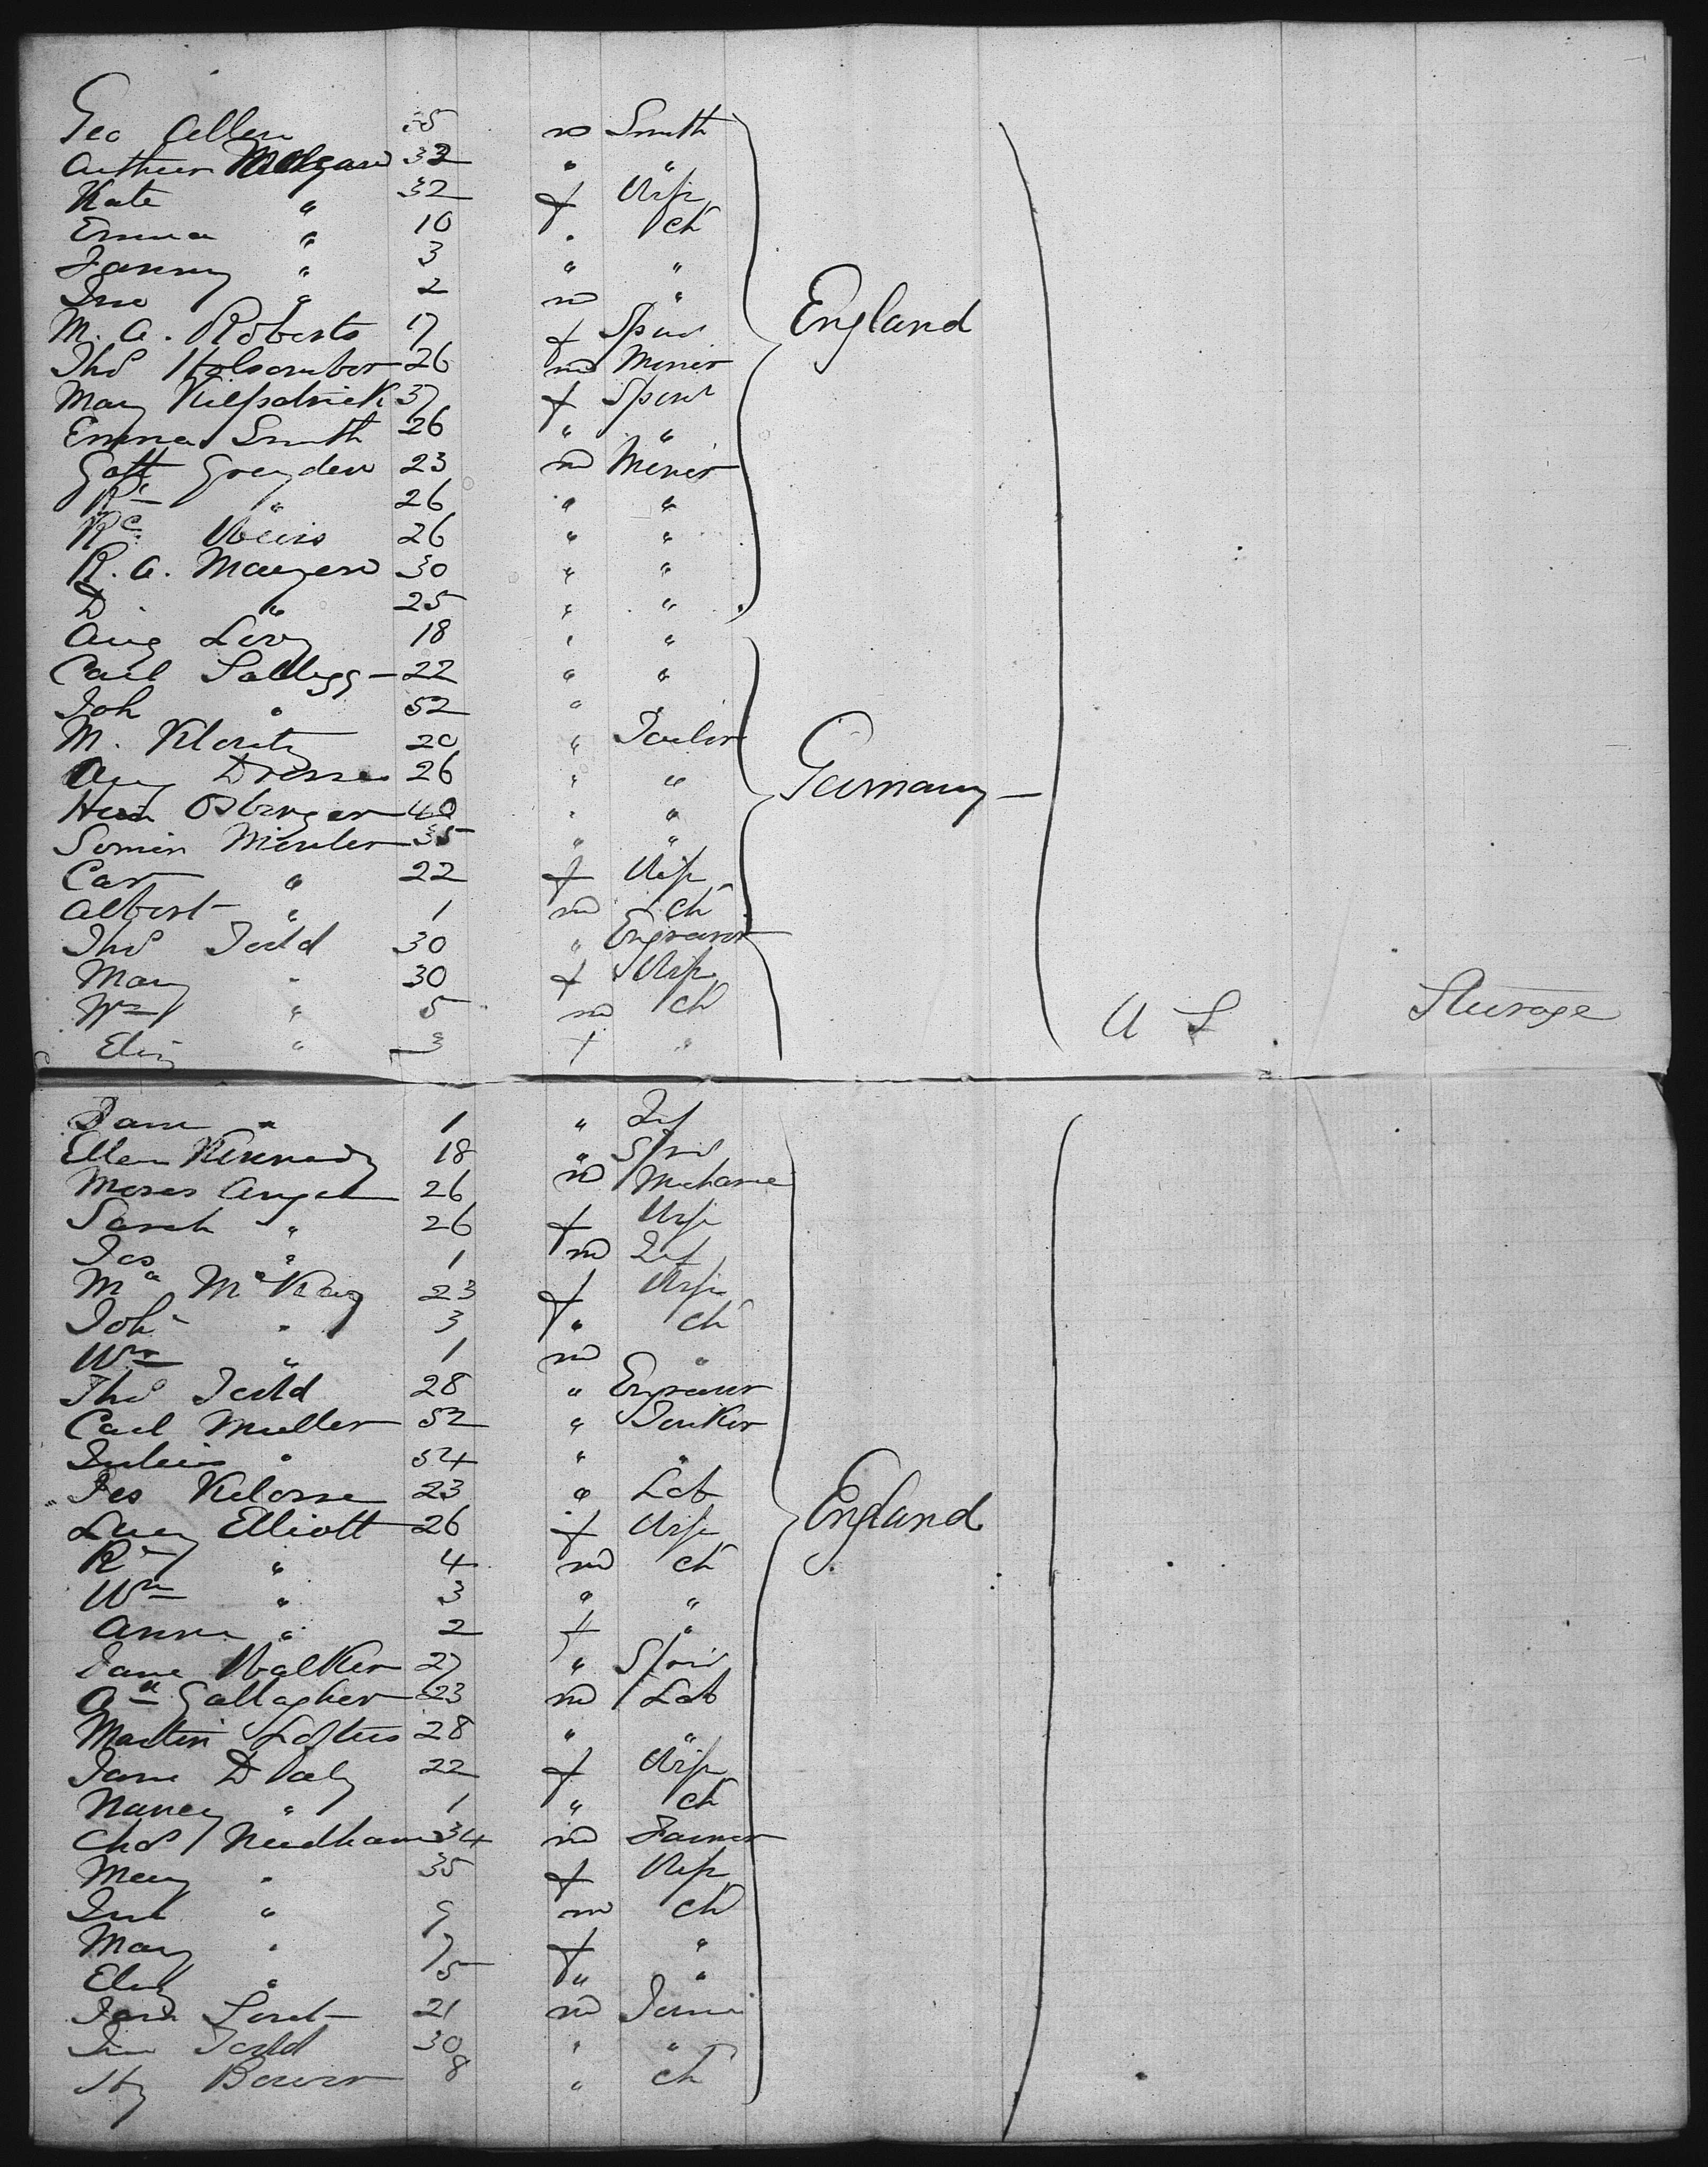 Geo Allen 35 m Smith
Arthur 32 " "
Kate " 32 f Wife
Emma " 10 " Ch
Fanny " 3 " "
Jno " 2 m "
M. A. Roberts 17 f Spins
Thos Holscomber 26 m Miner
Mary Kilpatrick 37 f Spins
Emma Smith 26 " "
England
Gott Greyden 23 m Miner
Rd " 26 " "
Rd Weiss 26 " "
R. A. Mauyers 30 " "
D. " 25 " "
Aug Levy 18 " "
Carl 22 " "
Joh " 52 "
M. Kloritz 20 " Tailor
Aug 26 " "
Germany
Osberger 40 " "
Simon Minter 35 " "
Car " 22 f Wife
Albert " 1 m Ch
Thos Todd 30 " Engraver
Mary " 30 f Wife
Wm " 5 m Ch
U S Steerage
Eliz " 3 f "
Jane " 1 " Inf
Ellen Kennedy 18 " Spins
Moses Angel 26 m Mechanic
Sarah " 26 f Wife
Jas " 1 m Inf
Ma McKay 23 f Wife
Joh " 3 " Ch
Wm " 1 m "
Thos Todd 28 " Engraver
Carl Muller 52 " Tinker
Julius " 54 " "
Jas 23 " Lab
Lucy Elliott 26 f Wife
England
Rd " 4 m Ch
Wm " 3 " "
Anna " 2 f "
Jane Walker 27 " Spins
Gallagher 23 m Lab
Martin Loftus 28 " "
Jane Daly 22 f Wife
Nancy " 1 " Ch
Chas Needham 34 m Farmer
Mary " 35 f Wife
Jno " 9 m Ch
Mary " 7 f "
Eliz " 5 " "
21 m
Todd 30 " "
Hy Bower 8 " Ch